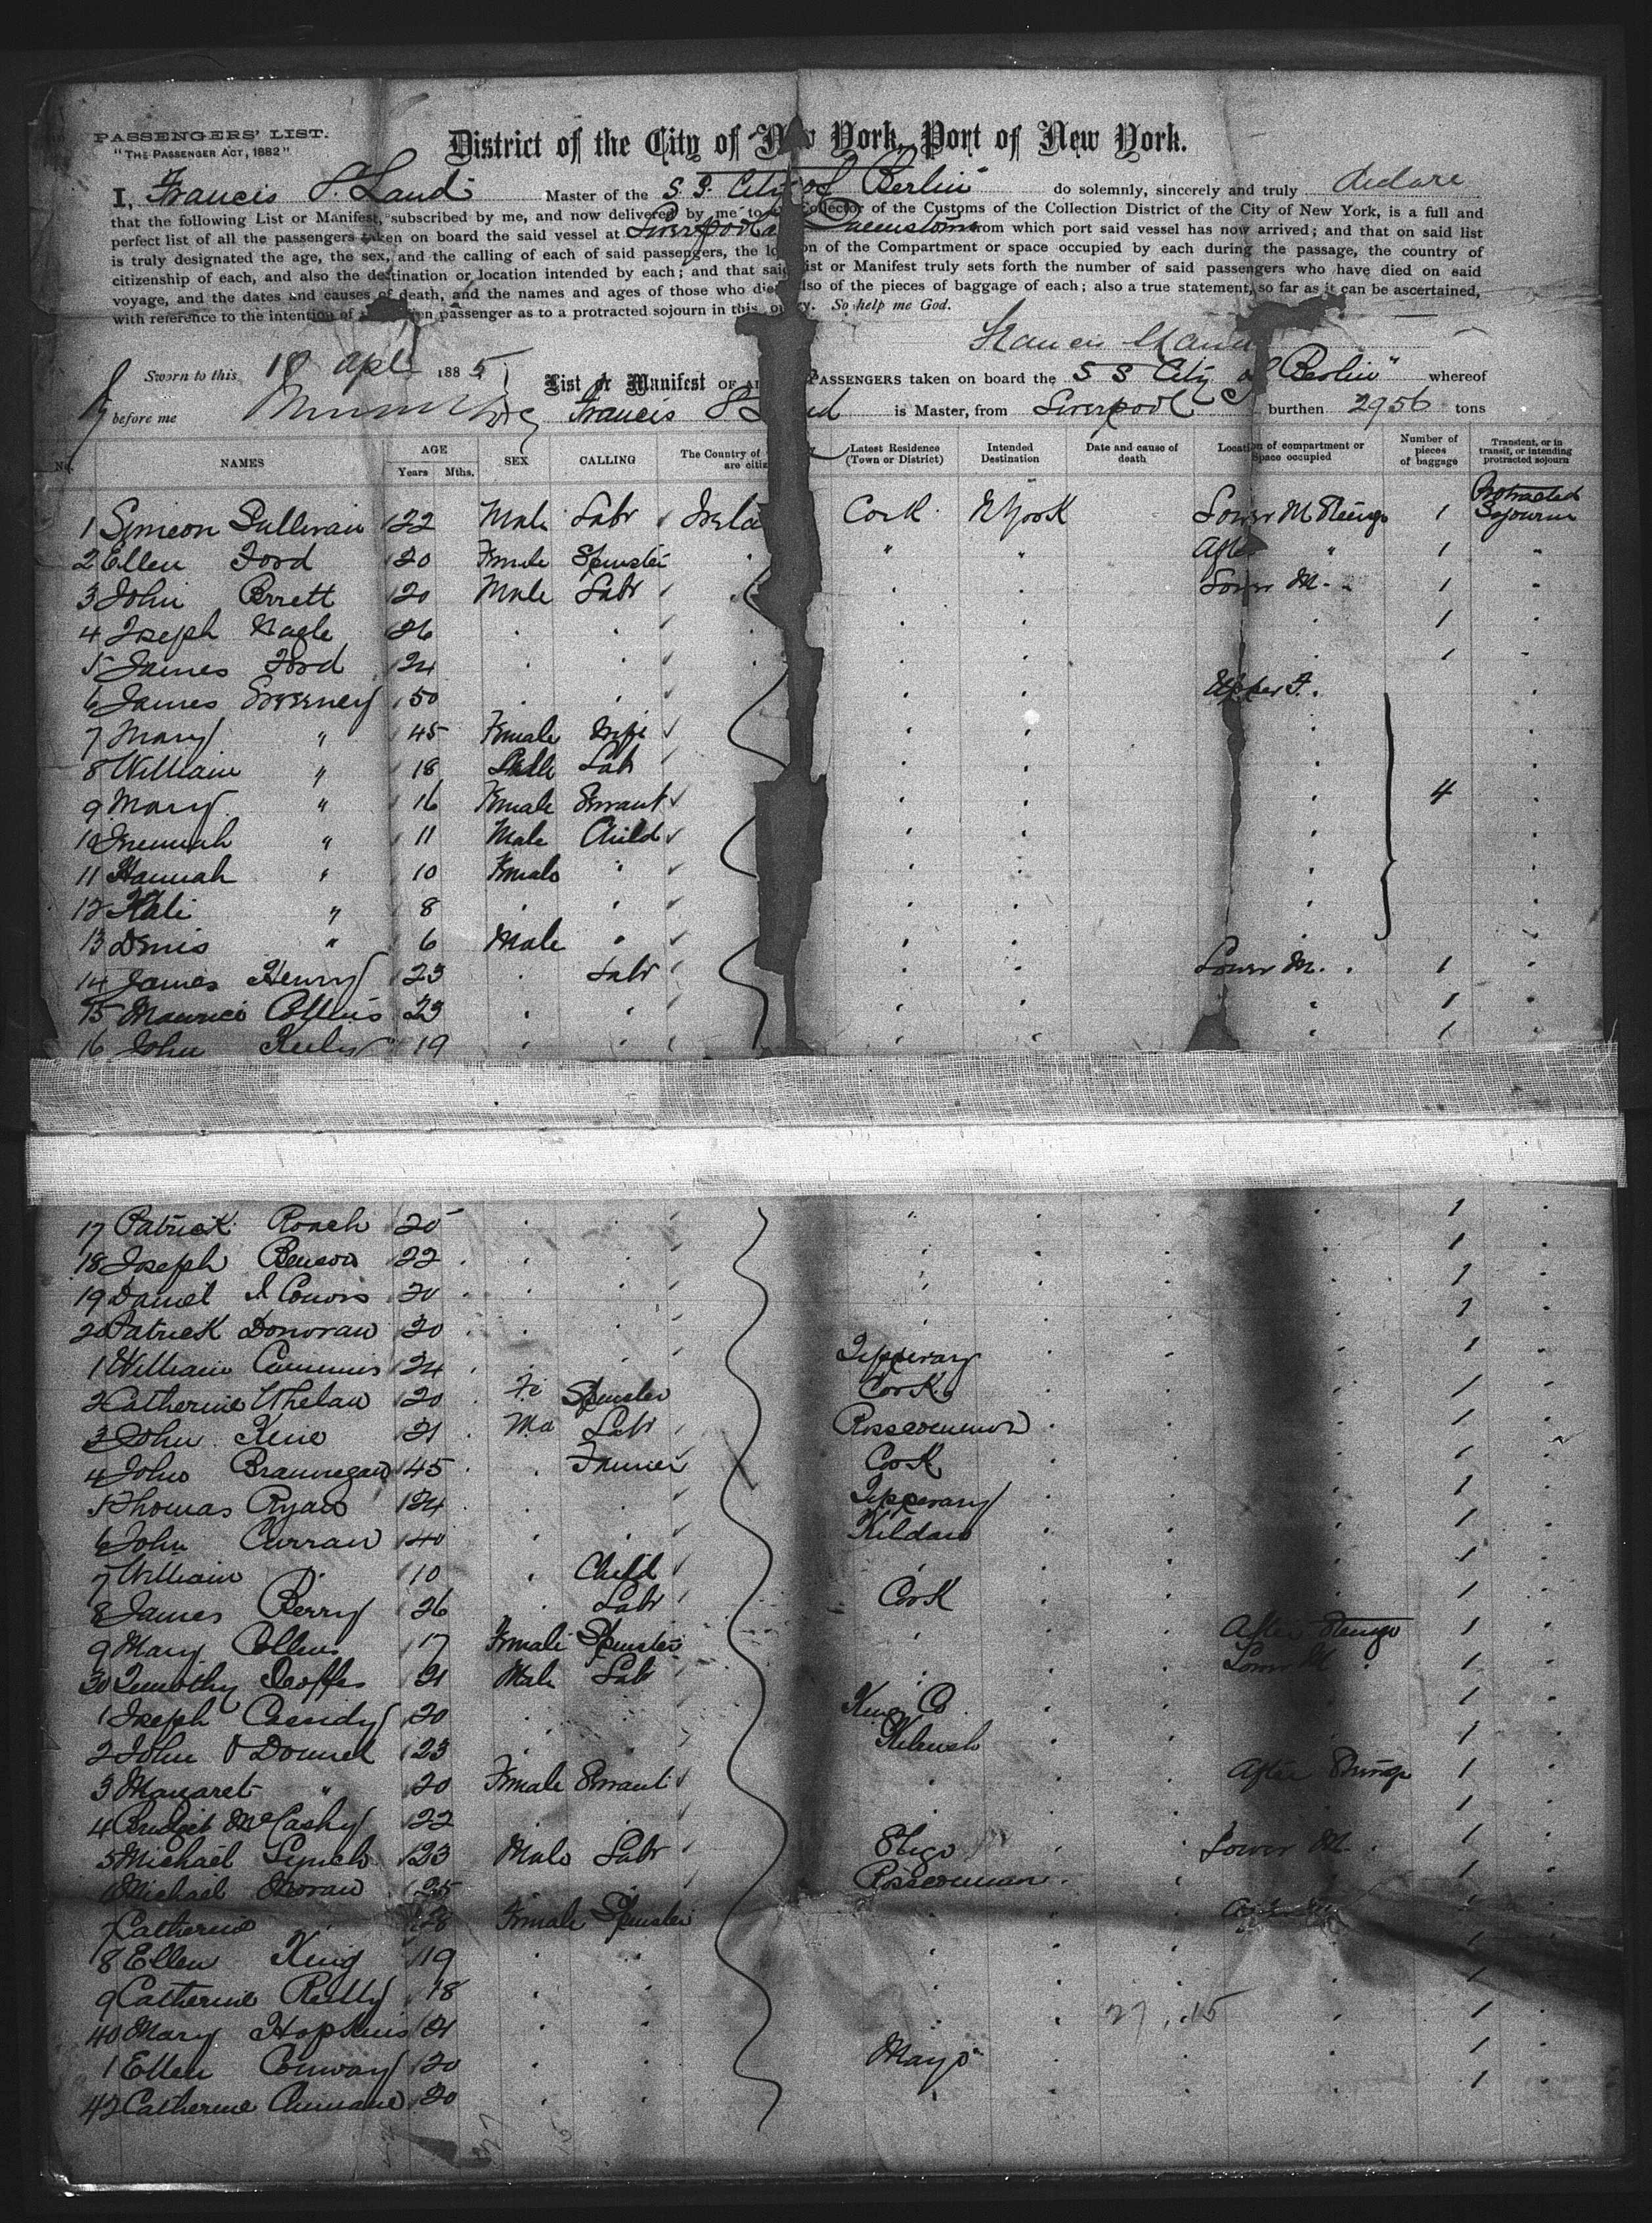 PASSENGERS' LIST.
"THE PASSENGER ACT, 1882"
District of the City of New York, Port of New York.
I, Francis S. Land Master of the S.S. City of Berlin do solemnly, sincerely and truly declare
that the following List or Manifest, subscribed by me, and now delivered by me to Collector of the Customs of the Collection District of the City of New York, is a full and
perfect list of all the passengers taken on board the said vessel at Liverpool & Queenstown from which port said vessel has now arrived; and that on said list
is truly designated the age, the sex, and the calling of each of said passengers, the lo on of the Compartment or space occupied by each during the passage, the country of
citizenship of each, and also the destination or location intended by each; and that said ist or Manifest truly sets forth the number of said passengers who have died on said
voyage, and the dates and causes of death, and the names and ages of those who died lso of the pieces of baggage of each; also a true statement, so far as it can be ascertained,
with reference to the intention of en passenger as to a protracted sojourn in this co ry. So help me God.
Sworn to this 18 Apl 1885
List or Manifest OF A PASSENGERS taken on board the S S City of Berlin" whereof
before me Francis S Land is Master, from Liverpool burthen 2956 tons
No. NAMES AGE Years Mths. SEX CALLING The Country of are citiz Latest Residence (Town or District) Intended Destination Date and cause of death Location of compartment or Space occupied Number of pieces of baggage Transient, or in transit, or intending protracted sojourn
1 Simeon Sullivan 22 Male Labr Irela Cork N York Lower M Steerage 1 Protracted Sojourn
2 Ellen Ford 20 Female Spinster " " After " 1 "
3 John Barrett 20 Male Labr Lower M. 1
4 Joseph Nagle 26 1
5 James Ford 24 1
6 James Sweeney 50 Upper F.
7 Mary " 45 Female Wife
8 William " 18 Male Labr
9 Mary " 16 Female Servant 4
10 Jeremiah " 11 Male Child
11 Hannah " 10 Female "
12 Kate " 8
13 Denis " 6 Male "
14 James Henry 23 Labr Lower M. 1
15 Maurice Collins 23 1
16 John Kiely 19 1
17 Patrick Roach 20 1
18 Joseph Benson 22 1
19 Daniel O Conors 20 1
20 Patrick Donovan 20 1
1 William Cummins 24 Tipperary 1
2 Catherine Whelan 20 Fe Spinster Cork 1
3 John Kene 21 Ma Labr Rosscommon 1
4 John Brannegan 45 Farmer Cork 1
5 Thomas Ryan 24 Tipperary 1
6 John Curran 40 Kildare 1
7 William " 10 Child 1
8 James Berry 26 Labr Cork 1
9 Mary Collins 17 Female Spinster After Steerage 1
30 Timothy 21 Male Labr Lower M 1
1 Joseph Cassidy 20 Kings Co 1
2 John O Donnel 23 1
3 Margaret " 20 Female Servant After Steerage 1
4 Bridget McCashy 22 1
5 Michael Lynch 23 Male Labr Sligo Lower M. 1
6 Michael Moran 25 Rosscommon 1
7 Catherine " 28 Female Spinster 1
8 Ellen King 19 1
9 Catherine Reilly 18 1
40 Mary Hopkins 21 27 . 15 1
1 Ellen Conway 20 Mayo 1
42 Catherine 20 1